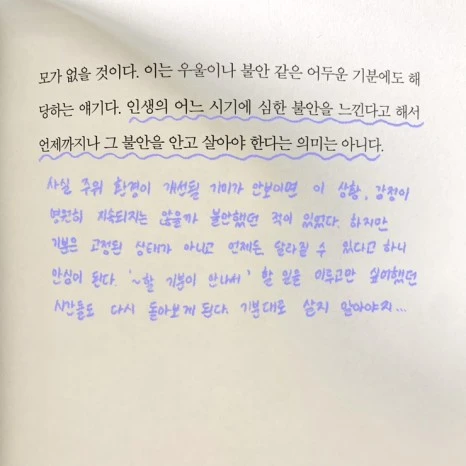 모가 없을 것이다. 이는 우울이나 불안 같은 어두운 기분에도 해
당하는 얘기다. 인생의 어느 시기에 심한 불안을 느낀다고 해서
언제까지나 그 불안을 안고 살아야 한다는 의미는 아니다.
사실 주위 환경이 개선될 기미가 안보이면 이 상황, 감정이
영원히 지속되지는 않을까 불안했던 적이 있었다. 하지만
기분은 고정된 상태가 아니고 언제든 달라질 수 있다고 하니
안심이 된다. '~할 기분이 안나서' 할 일을 미루고만 싶어했던
시간들도 다시 돌아보게 된다. 기분대로 살지 말아야지...